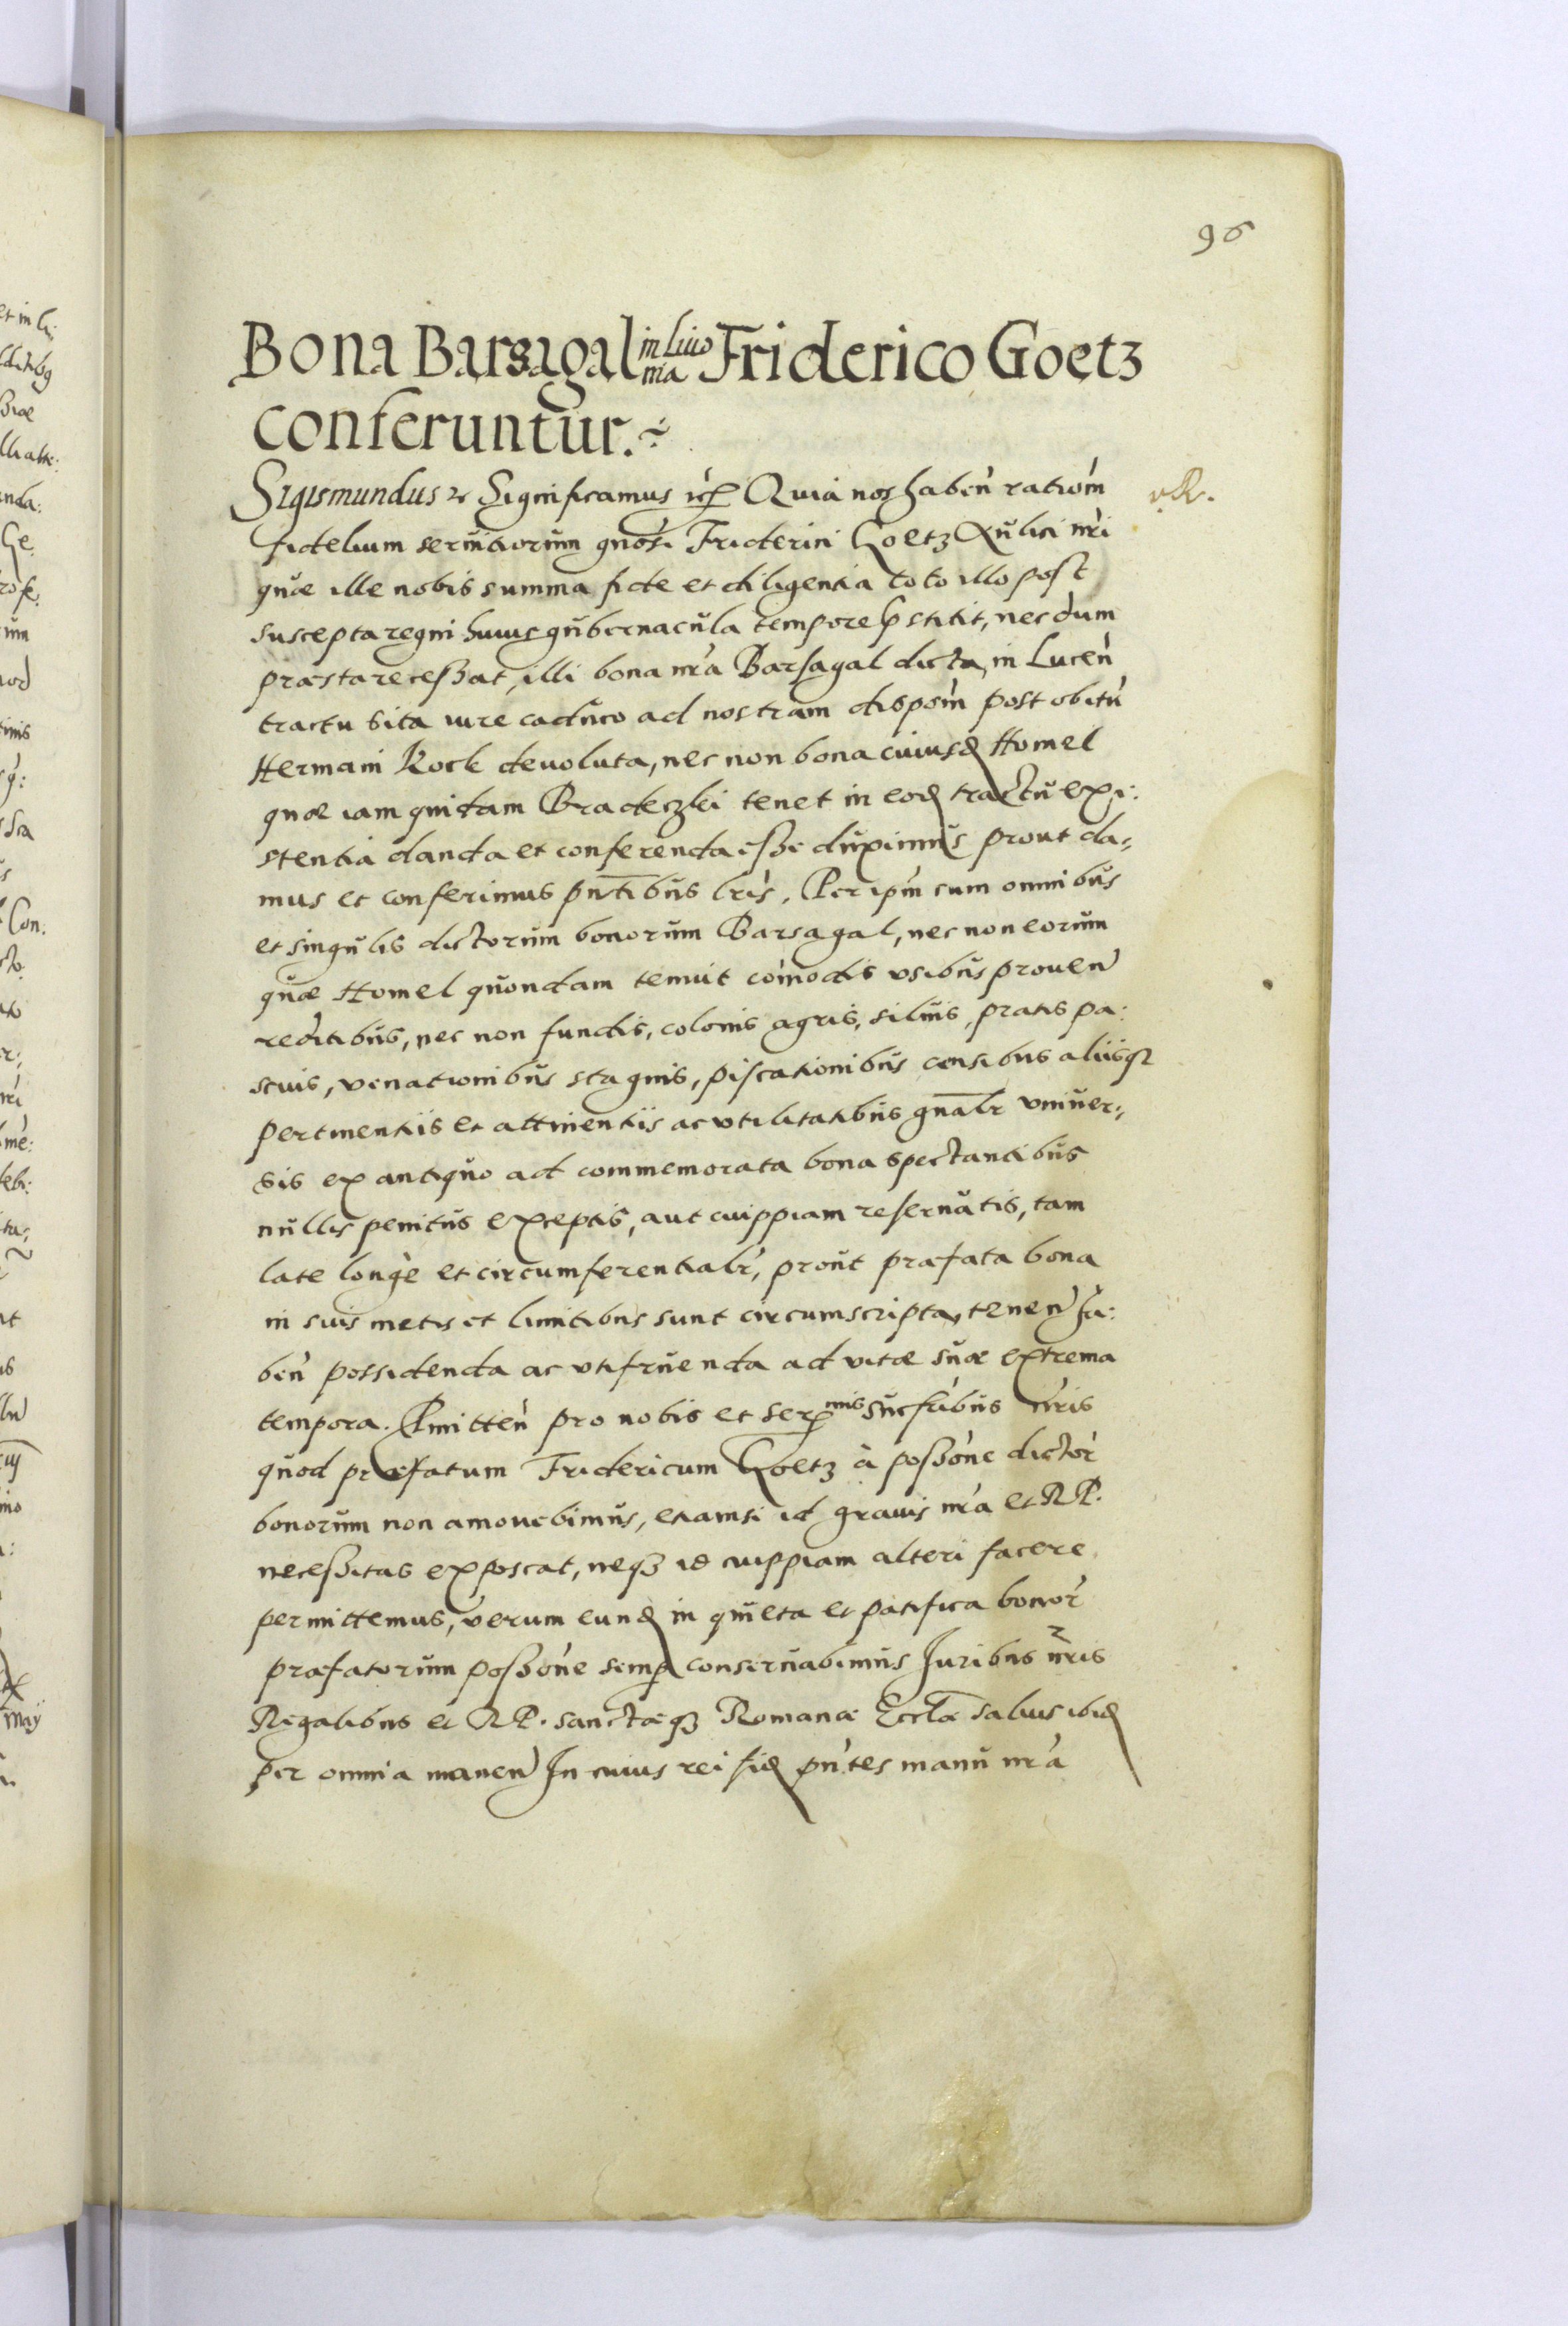 96
Bona Barsagal in Livo nia Friderico Goetz
conferuntur.
Sigismundus etc Significamus etc Quia nos haben̄ ratiom̄
fidelium servitiorum gnosi Friderici Goetz Aulici nr̄i
quæ ille nobis summa fide et diligentia toto illo post
suscepta regni huius gubernacula tempore p̄stitit, nec dum
præstare cessat, illi bona nr̄a Barsagal dicta, in Lucen̄
tractu sita iure caduco ad nostram dispom̄ post obitū
Hermani Kock devoluta, nec non bona cuiusd Homel
quæ iam quidam Bradeczki tenet in eod tractu exi:
stentia danda et conferenda esse duximus prout da:
mus et conferimus pn̄tibus lr̄is. Per ipm̄ cum omnibus
et singulis dictorum bonorum Barsagal, nec non eorum
quæ Homel quondam tenuit com̄odis vsibus proven
reditibus, nec non fundis, colonis agris, siluis, pratis pa:
scuis, venationibus stagnis, piscationibus censibus aliisq
pertinentiis et attinentiis ac vtilitatibus gn̄alr vniver:
sis ex antiquo ad commemorata bona spectantibus
nullis penitus exceptis, aut cuippiam reservatis, tam
late longè et circumferentialr̄, prout præfata bona
in suis metis et limitibus sunt circumscripta, tenen ha:
ben̄ possidenda ac vtifruenda ad vitæ suæ extrema
tempora. Pmitten̄ pro nobis et Ser mis Sucſſibus nr̄is
quod præfatum Fridericum Goetz à poss̄one dictor̄
bonorum non amovebimus, etiamsi id gravis nr̄a et RP.
necessitas exposcat, neq id cuippiam alteri facere
permittemus, verum eund in quieta et patifica bonor̄
præfatorum poss̄one semp conservabimus Juribus nr̄is
Regalibus et RP. sanctæq Romanæ Eccl̄æ salvis ibid
per omnia manen In cuius rei fid pn̄tes manu nr̄a